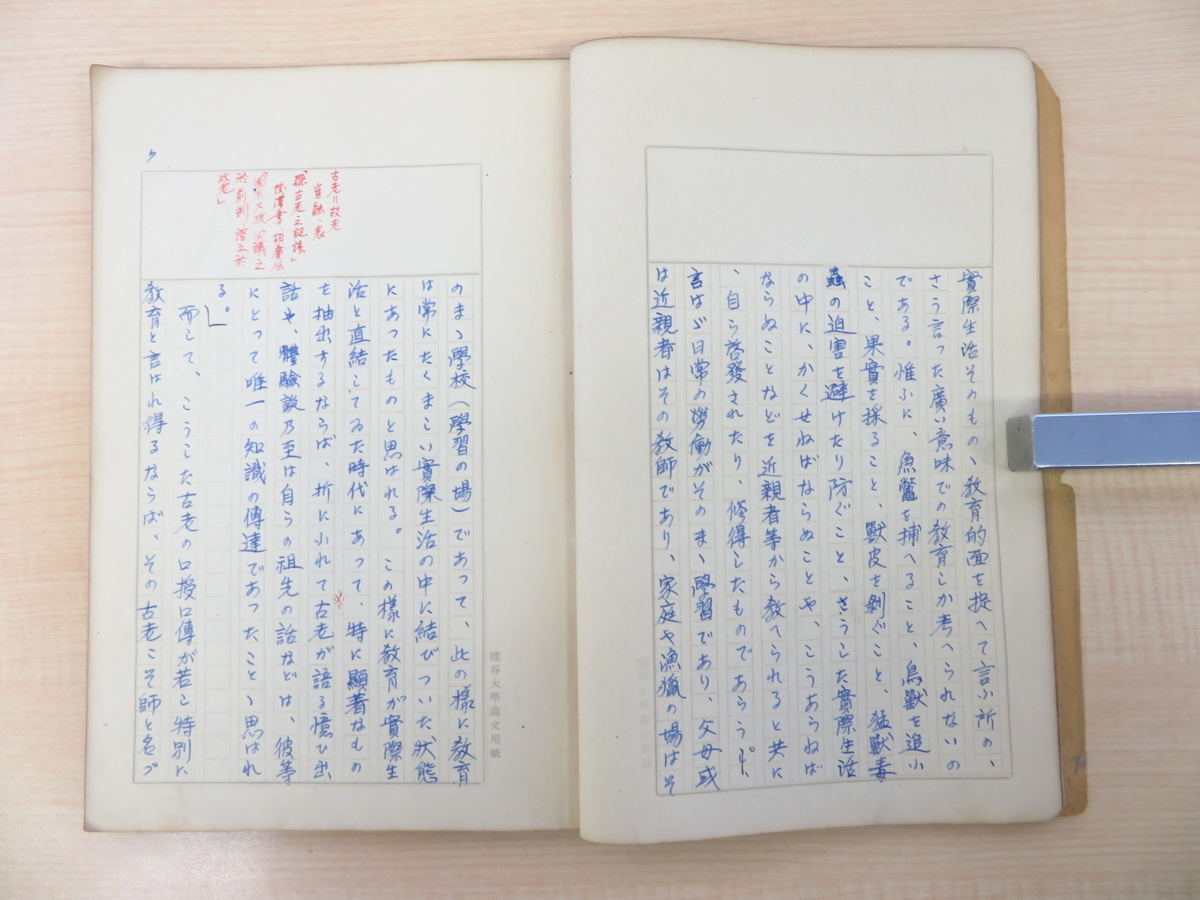 實際生活そのものゝ教育的面を捉へて言ふ所の、
さう言った廣い意味での教育しか考へられないの
である。惟ふに、魚鼈を捕へること、鳥獸を追ふ
こと、果實を採ること、獸皮を剝ぐこと、猛獸毒
蟲の迫害を避けたり防ぐこと、さうした實際生活
の中に、かくせねばならぬことや、こうあらねば
ならぬことなどを近親者等から教へられると共に
、自ら啓發されたり、修得したものであらう。
言はゞ日常の勞働がそのまゝ學習であり、父母或
は近親者はその教師であり、家庭や漁獵の場はそ
のまゝ學校(學習の場)であって、此の樣に教育
は常にたくましい實際生活の中に結びついた狀態
にあつたものと思はれる。この樣に教育が實際生
活と直結してゐた時代にあって、特に顯著なもの
を抽出するならば、折にふれて古老が語る憶ひ出
話や、體驗談乃至は自らの祖先の話などは、彼等
にとって唯一の知識の傳達であつたことゝ思はれ
る。
而して、こうした古老の口授口傳が若し特別に
教育と言はれ得るならば、その古老こそ師と名づ
古老リ故老
崔融、表
「採古老之記誌」
後漢書、
故老」
龍谷大學論文用紙